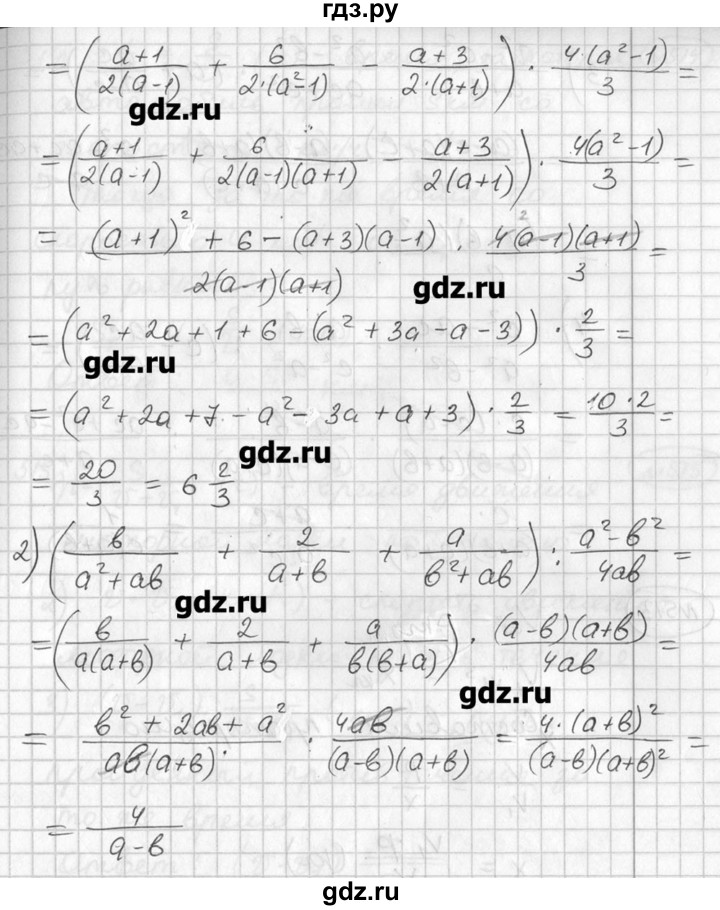 гдз.ру
= ( (a+1)/(2(a-1)) + 6/(2·(a²-1)) - (a+3)/(2·(a+1)) ) · (4·(a²-1))/3 =
gdz.ru
= ( (a+1)/(2(a-1)) + 6/(2(a-1)(a+1)) - (a+3)/(2(a+1)) ) · (4(a²-1))/3 =
= ((a+1)² + 6 - (a+3)(a-1))/(2(a-1)(a+1)) · (4²(a-1)(a+1))/3 =
gdz.ru
= (a² + 2a + 1 + 6 - (a² + 3a - a - 3)) · 2/3 =
gdz.ru
= (a² + 2a + 7 - a² - 3a + a + 3) · 2/3 = (10·2)/3 =
gdz.ru
= 20/3 = 6 2/3
2) ( в/(a²+ав) + 2/(a+в) + a/(в²+ав) ) : (a²-в²)/(4ав) =
gdz.ru
= ( в/(a(a+в)) + 2/(a+в) + a/(в(в+a)) ) · ((a-в)(a+в))/(4ав) =
gdz.ru
= (в² + 2ав + a²)/(ав(a+в)) · (4ав)/((a-в)(a+в)) = (4·(a+в)²)/((a-в)(a+в)²) =
= 4/(a-в)
gdz.ru